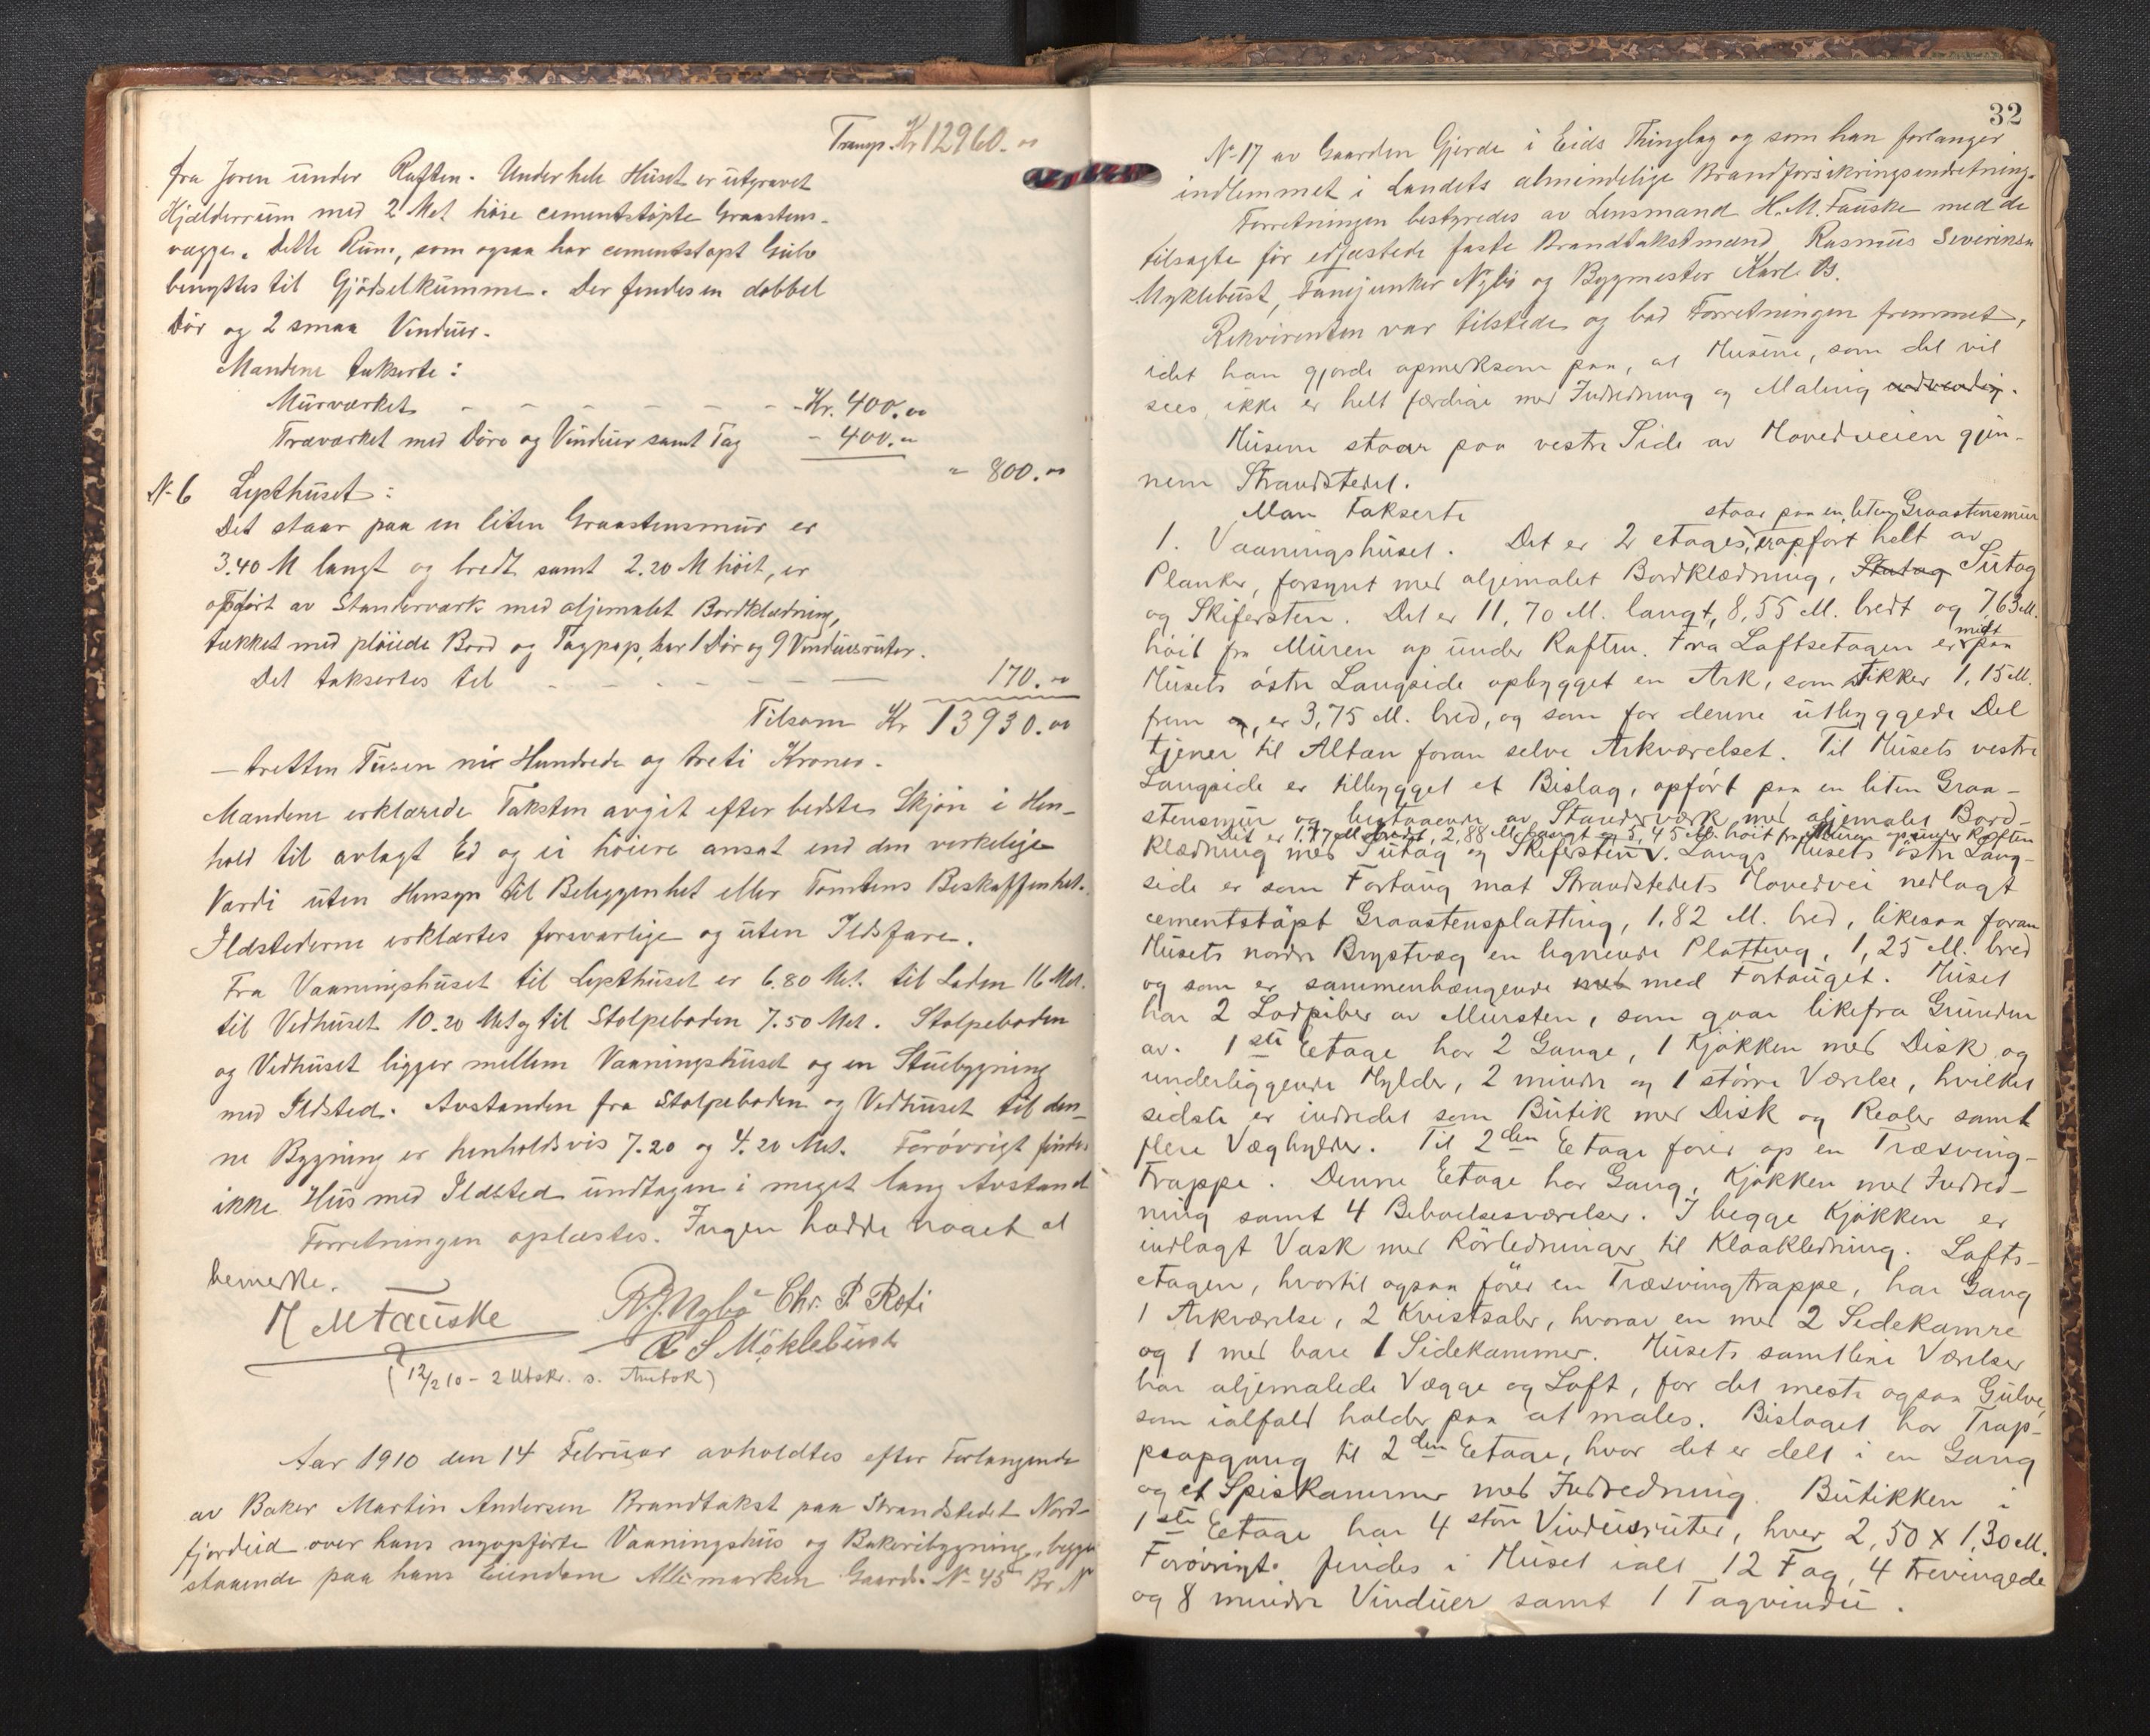 Transp. Kr 12960.00
fra Joren under Raften. Under hele Huset er utgravet
Kjælderrum med 2 Met høie cementstøpte Graastens-
vægge. Dette Rum, som ogsaa har cementstøpt Gulv
benyttes til Gjødselkumme. Der findes en dobbel
Dør og 2 smaa Vinduer.
Mændene takserte:
Murværket - - - - - - - Kr. 400.00
Træværket med Døre og Vinduer samt Tag - 400.00
" 800.00
N. 6 Lysthuset:
Det staar paa en liten Graastensmur er
3.40 M langt og bredt samt 2.20 M høit, er
opført av Standerværk med oljemalet Bordklædning,
tækket med pløiede Bord og Tagpap, har 1 Dør og 9 Vinduesruter.
Det takseres til - - - - - 170.00
Tilsam Kr 13930.00
— tretten Tusen ni Hundrede og treti Kroner.
Mændene erklærede Taksten avgit efter bedste Skjøn i Hen-
hold til avlagt Ed og ei høiere ansat end den virkelige
Værdi uten Hensyn til Beliggenhet eller Tomtens Beskaffenhet.
Ildstederne erklærtes forsvarlige og uten Ildsfare.
Fra Vaaningshuset til Lysthuset er 6.80 Met. til Laden 16 Met.
til Vedhuset 10.20 Met og til Stolpeboden 7.50 Met. Stolpeboden
og Vedhuset ligger mellem Vaaningshuset og en Stuebygning
med Ildsted. Avstanden fra Stolpeboden og Vedhuset til den-
ne Bygning er henholdsvis 7.20 og 4.20 Met. Forøvrigt findes
ikke Hus med Ildsted undtagen i meget lang Avstand
Forretningen oplæstes. Ingen hadde noget at
bemerke.
H M Fauske R. J. Nybø Chr. P. Roti
R S Möklebust
(12/2 10 - 2 Utskr. s.
Aar 1910 den 14 Februar avholdtes efter Forlangende
av Baker Martin Andersen Brandtakst paa Strandstedet Nord-
fjordeid over hans nyopførte Vaaningshus og Bakeribygning, begge
staaende paa hans Eiendom Allemarken Gaards N- 45 Br. N
32
N- 17 av Gaarden Gjerde i Eids Thinglag og som han forlanger
indlemmet i Landets almindelige Brandforsikringsindretning.
Forretningen bestyredes av Lensmand H. M. Fauske med de
tilsagte før edfæstede faste Brandtakstmænd Rasmus Severinsen
Myklebust, Fanejunker Nybø og Bygmester Karl Os.
Rekvirenten var tilstede og bad Forretningen fremmet,
idet han gjorde opmerksom paa, at Husene, som det vil
sees, ikke er helt færdige med Indredning og Maling indvendig.
Husene staar paa vestre Side av Hovedveien gjen-
nem Strandstedet.
Man takserte
1. Vaaningshuset. Det er 2 etages, staar paa en liten Graastensmur er opført helt av
Planker, forsynt med oljemalet Bordklædning, Sutag
og Skifersten. Det er 11,70 M. langt, 8,55 M. bredt og 7,63 M.
høit fra Muren op under Raften. Fra Loftsetagen er midt paa
Husets østre Langside opbygget en Ark, som stikker 1,15 M.
frem og er 3,75 M. bred, og som for denne utbyggede Del
tjener til Altan foran selve Arkværelset. Til Husets vestre
Langside er tilbygget et Bislag, opført paa en liten Graa-
stensmur og bestaaende av Standerværk med oljemalet Bord-
Det er 1,77 M. bredt, 2,88 M. langt og 5,45 M. høit fra Muren op under Raften
klædning med Sutag og Skifersten. Langs Husets østre Lang-
side er som Fortaug mot Strandstedets Hovedvei nedlagt
cementstøpt Graastensplatting, 1.82 M. bred, likesaa foran
Husets nordre Brystvæg en lignende Platting, 1,25 M. bred
og som er sammenhængende med Fortauget. Huset
har 2 Lodpiber av Mursten, som gaar like fra Grunden
av. 1ste Etage har 2 Gange, 1 Kjøkken med Disk og
underliggende Hylder, 2 mindre og 1 større Værelse, hvilket
sidste er indredet som Butik med Disk og Reoler samt
flere Væghylder. Til 2den Etage fører op en Træsving-
Trappe. Denne Etage har Gang, Kjøkken med Indred-
ning samt 4 Beboelsesværelser. I begge Kjøkken er
indlagt Vask med Rørledninger til Kloakledning. Lofts-
etagen, hvortil ogsaa fører en Træsvingtrappe, har Gang
1 Arkværelse, 2 Kvistsaler, hvorav en med 2 Sidekamre
og 1 med bare 1 Sidekammer. Husets samtlige Værelser
har oljemalede Vægge og Loft, for det meste ogsaa Gulve,
som ialfald holder paa at males. Bislaget har Trap-
peopgang til 2den Etage, hvor det er delt i en Gang
og et Spiskammer med Indredning. Butikken i
1ste Etage har 4 store Vinduesruter, hver 2,50 x 1,30 M.
Forøvrigt findes i Huset ialt 12 Fag, 4 trevingede
og 8 mindre Vinduer samt 1 Tagvindu.